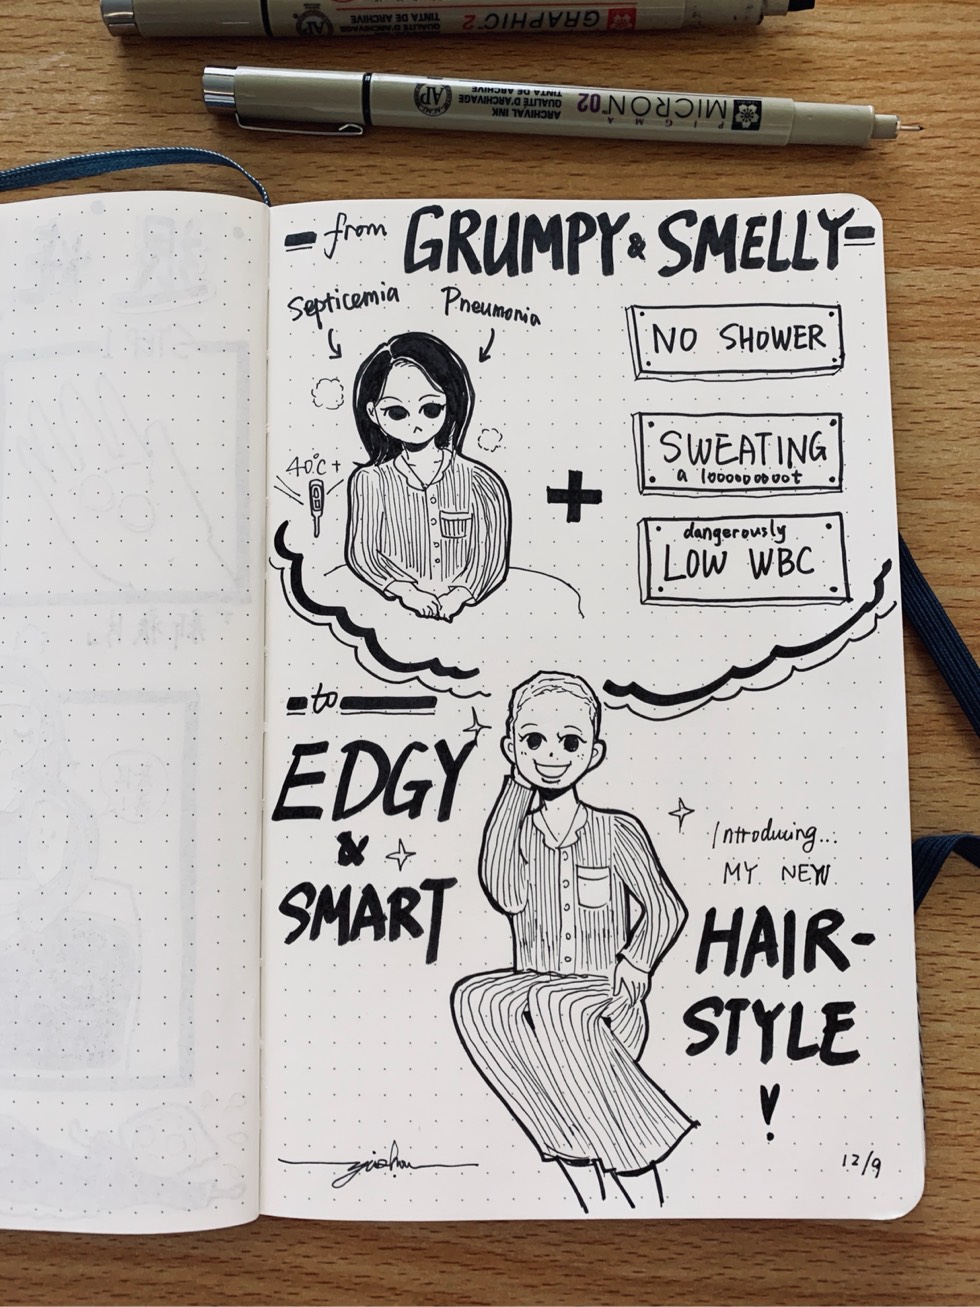 GRAPHIC™2
TINTA DE ARCHIVE
QUALITÉ D'ARCHIVAGE
AP
PIGMA
MICRON™02
ARCHIVAL INK
QUALITÉ D'ARCHIVAGE
TINTA DE ARCHIVE
AP
from GRUMPY & SMELLY
Septicemia
Pneumonia
40°C+
NO SHOWER
SWEATING
a looooooooot
dangerously
LOW WBC
to
EDGY
&
SMART
Introducing...
MY NEW
HAIR-
STYLE
!
12/9